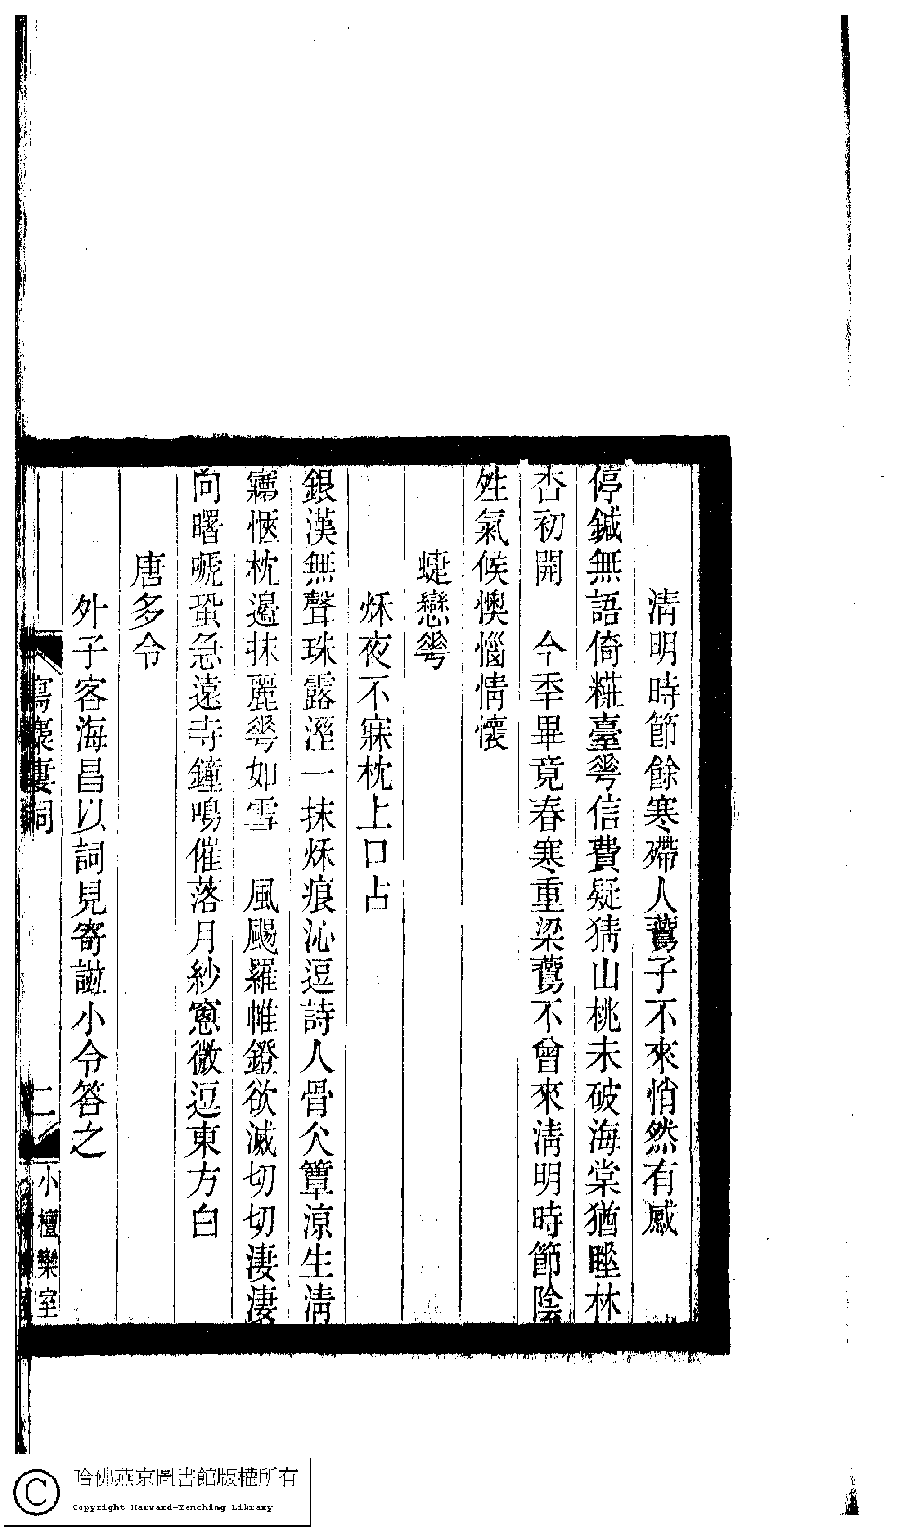 清明時節餘寒殢人鷰子不來悄然有感
停鍼無語倚糚臺㠭信費疑猜山桃未破海棠猶䁅林
杏初開　今秊畢竟春寒重梁鷰不曾來淸明時節陰
姓氣候懊惱情懷
蜨戀蕐
秌夜不寐枕上口占
銀漢無聲珠露溼一抹秌痕沁逗詩人骨仌簟涼生淸
寤愜枕邊抹麗蕐如雪　風颺羅帷鐙欲滅切切淒淒
向曙唬蛩急遠寺鐘鳴催落月紗窻微逗東方白
唐多令
外子客海昌以詞見寄謎小令答之
寫蘗廔詞
二
小檀欒室
哈佛燕京圖書館版權所有
Copyright Harvard-Yenching Library